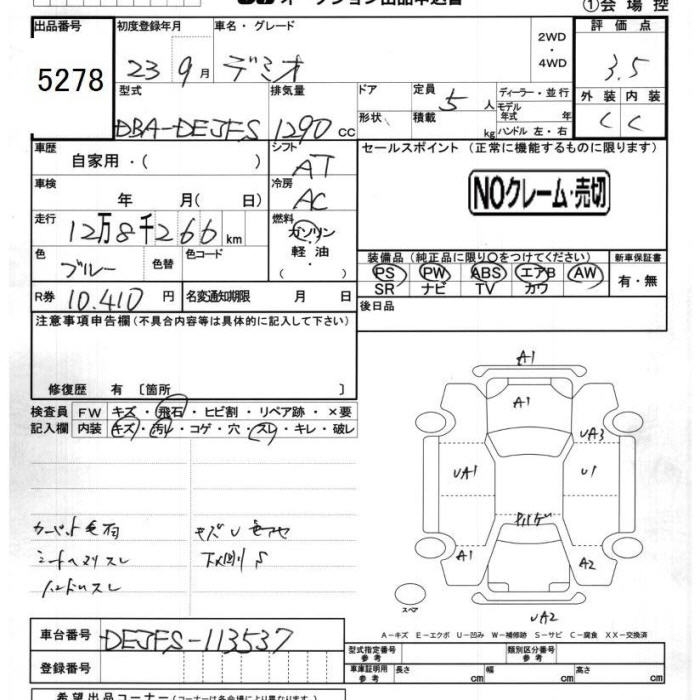 ①会場控
出品番号 初度登録年月 車名・グレード 評価点
5278 23 9月 デミオ 2WD・4WD 3.5
型式 排気量 ドア 定員 5人 ディーラー・並行 外装 内装
DBA-DEJFS 1290cc 形状 積載 kg モデル年式 年 C C
ハンドル 左・右
車歴 自家用・( ) シフト AT セールスポイント (正常に機能するものに限ります)
車検 年 月( 日) 冷房 AC NOクレーム・売切
走行 12万8千266km 燃料 ガソリン・軽油・( )
色 ブルー 色替 色コード 装備品 (純正品に限り○をつけてください) 新車保証書
PS PW ABS エアB AW 有・無
SR ナビ TV カワ
R券 10.410円 名変通知期限 月 日 後日品
注意事項申告欄 (不具合内容等は具体的に記入して下さい)
修復歴 有 [箇所 ]
検査員 FW キズ・飛石・ヒビ割・リペア跡・×要
記入欄 内装 キズ・汚レ・コゲ・穴・スレ・キレ・破レ
A1
A1
UA3
UA1 U1
A1 A2
スペア
UA2
キズU
下回リS
ハンドルスレ
A-キズ E-エクボ U-凹み W-補修跡 S-サビ C-腐食 XX-交換済
車台番号 DEJFS-113537
型式指定番号 参考 類別区分番号 参考
登録番号 車庫証明用 参考 長さ cm 幅 cm 高さ cm
希望出品コーナー(コーナーは各会場により異なります)